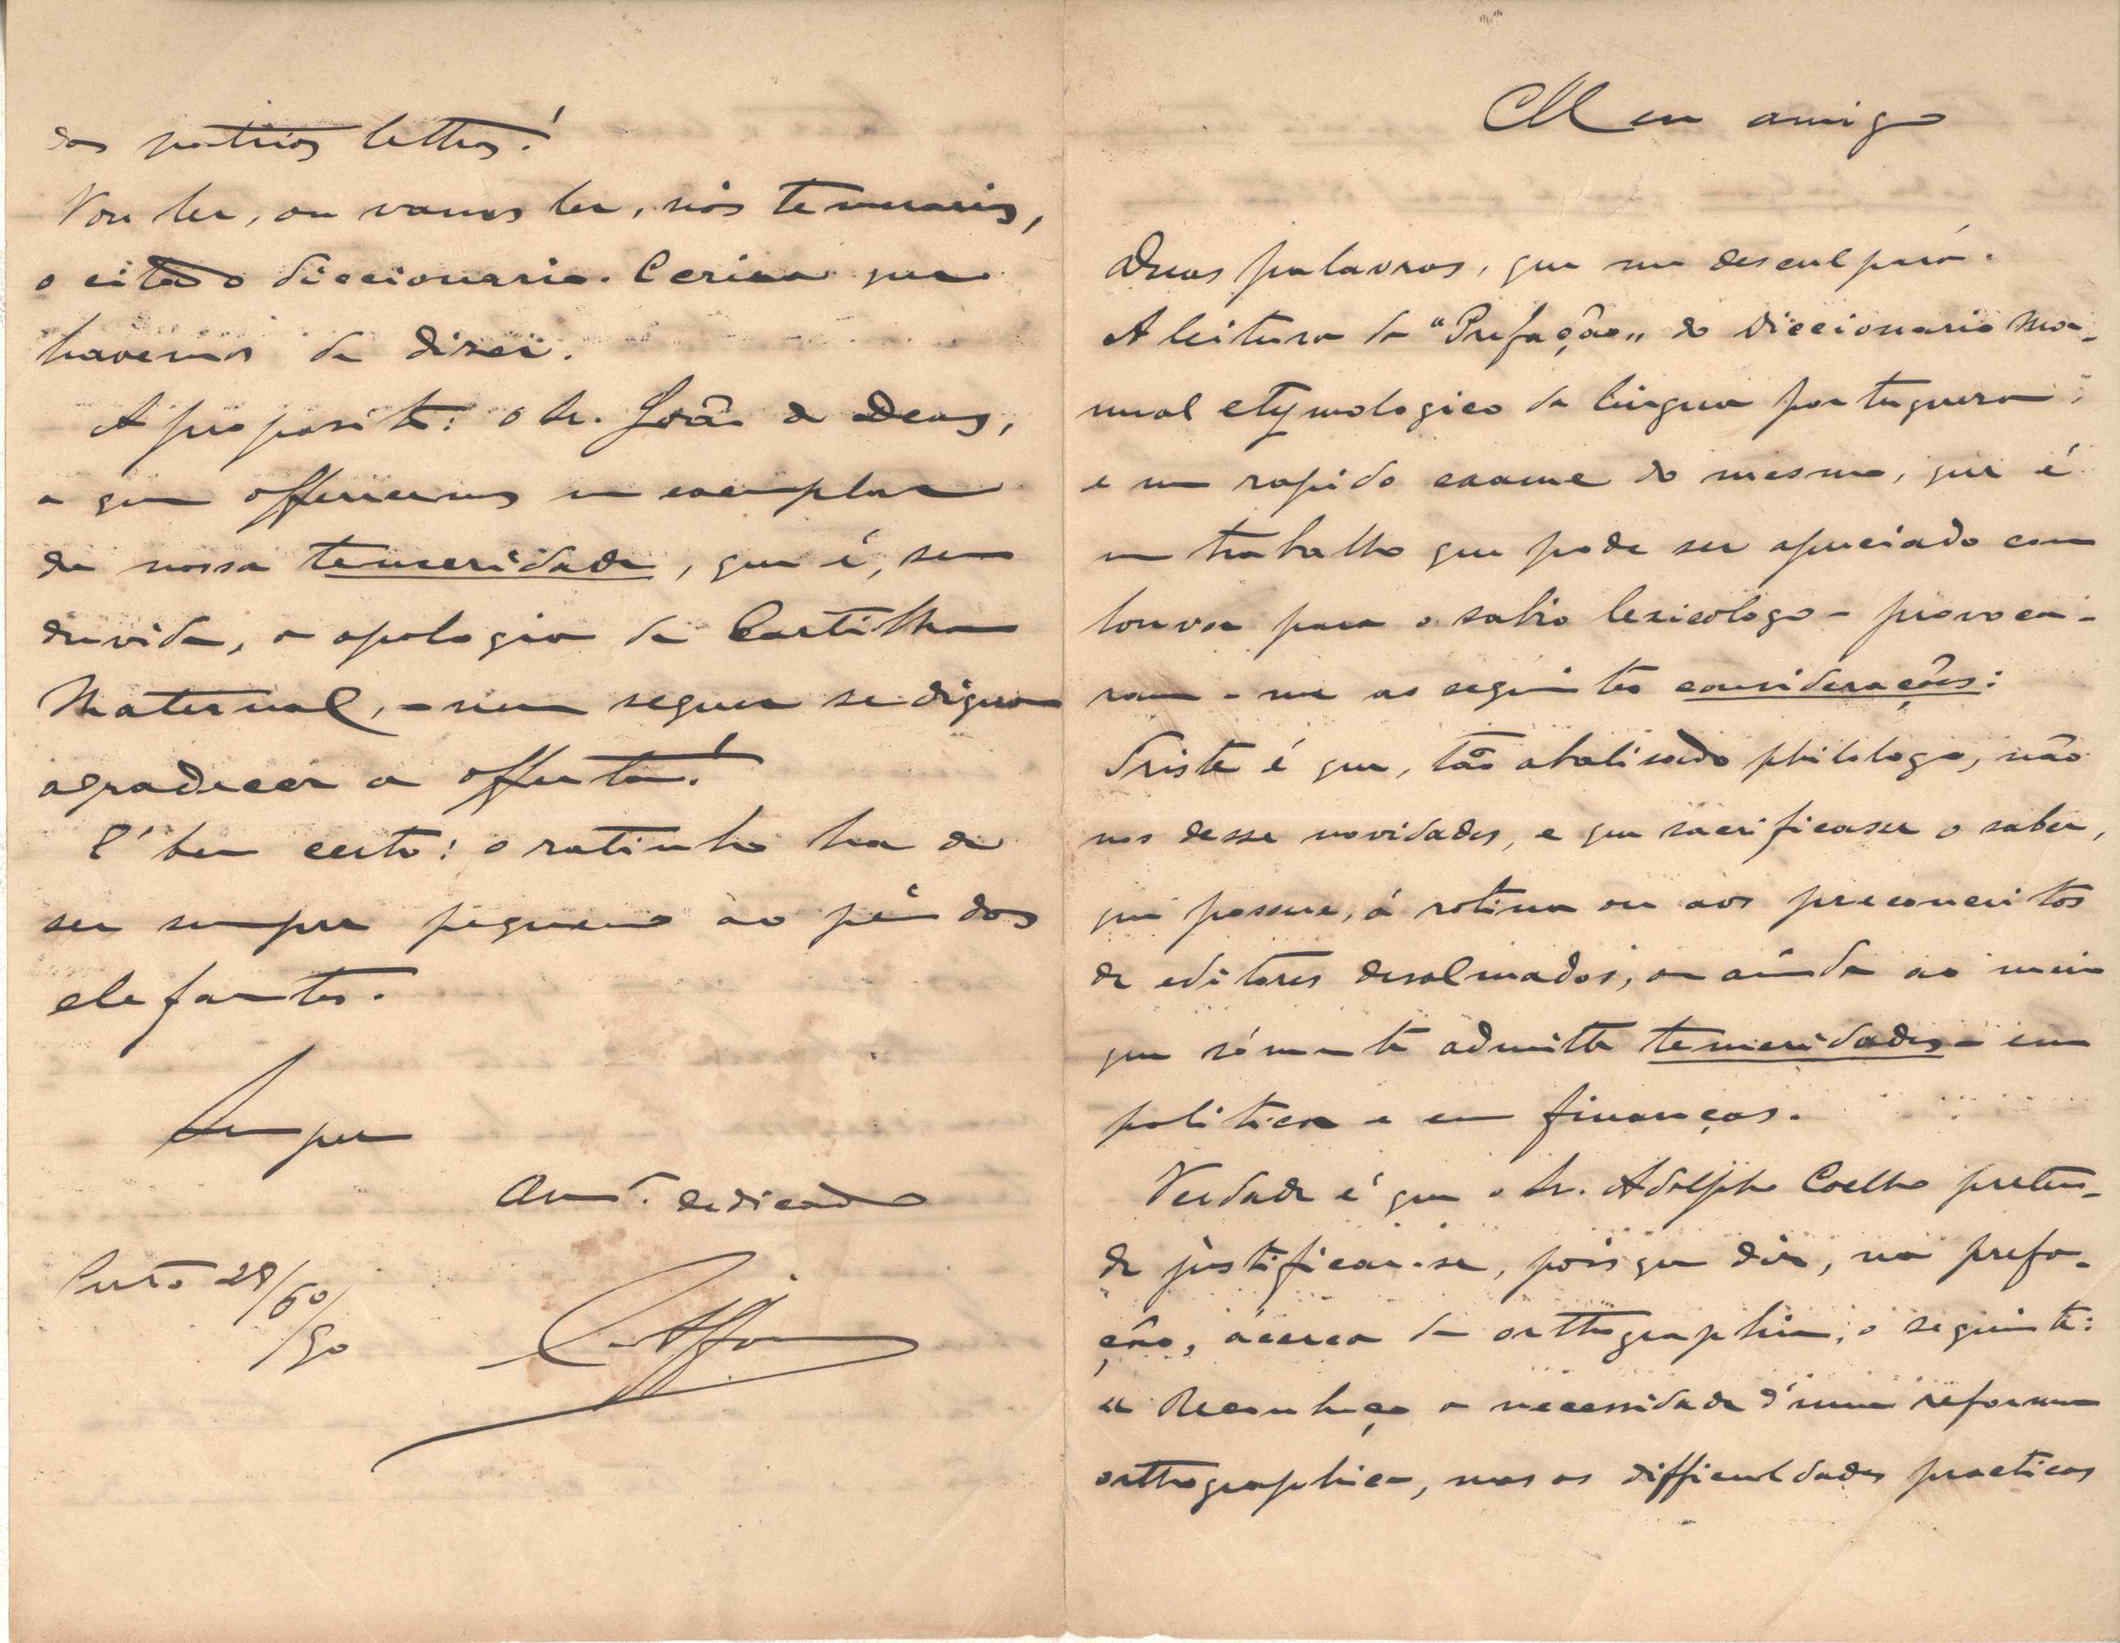 Meu amigo
Duas palavras, que me desculpará.
A leitura da "Prefação" do Diccionario Ma-
nual etymologico da lingua portugueza;
e um rapido exame do mesmo, que é
um trabalho que pode ser apreciado com
louvor para o sabio lexicologo - provoca-
ram-me as seguintes considerações:
Triste é que, tão abalisado philologo, não
nos desse novidades, e que sacrificasse o saber,
que possue, á rotina ou aos preconceitos
de editores desalmados, ou ainda ao meio
que sómente admitte temeridades - em
politica e em finanças.
Verdade é que o Sr. Adolpho Coelho preten-
de justificar-se, pois que diz, na prefa-
ção, ácerca da orthographia, o seguinte:
"Reconheço a necessidade d'uma reforma
orthographica, mas as difficuldades practicas
das patrias lettras!
Vou ler, ou vamos ler, nós temerarios,
o citado diccionario. Coriza que
havemos de dizer.
A proposito: o Sr. João de Deus,
a quem offerecemos um exemplar
da nossa temeridade, que é, sem
duvida, a apologia da Cartilha
Maternal, - nem sequer se dignou
agradecer a offerta!
É bem certo: o ratinho ha de
ser sempre pequeno ao pé dos
elefantes.
Sempre
Am.º dedicado
Porto 28/60/90